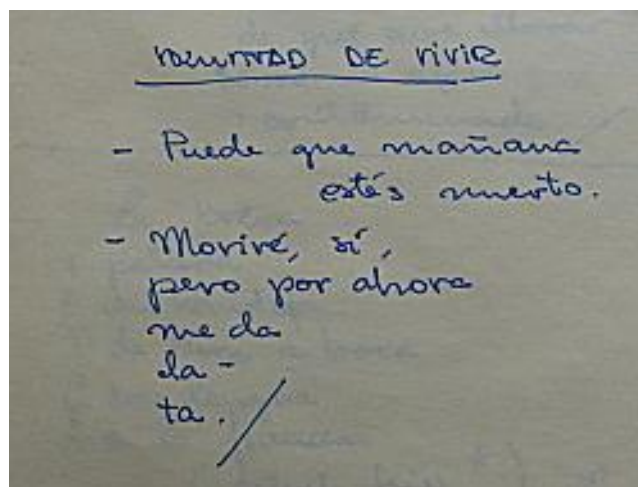 VOLUNTAD DE VIVIR
- Puede que mañana
estés muerto.
- Moriré, sí,
pero por ahora
me da
la-
ta.